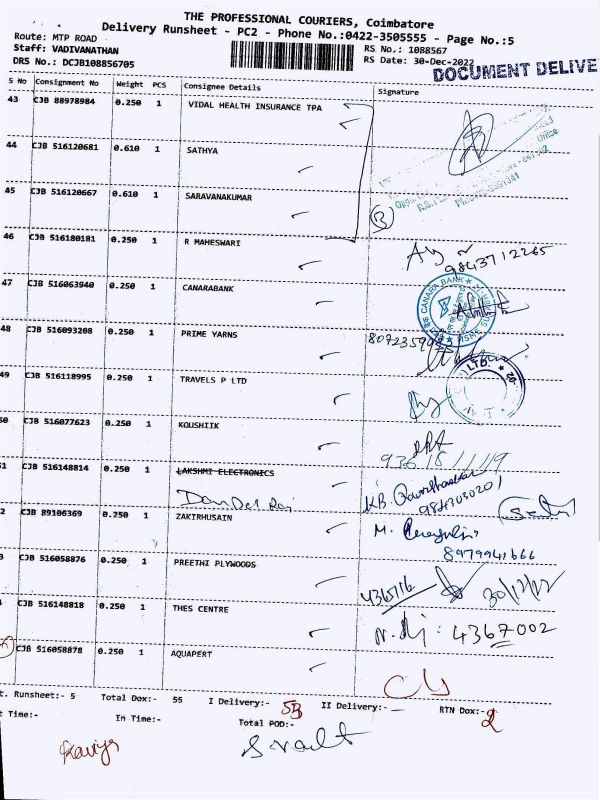 THE PROFESSIONAL COURIERS, Coimbatore
Delivery Runsheet - PC2 - Phone No.:0422-3505555 - Page No.:5
Route: MTP ROAD
Staff: VADIVANATHAN RS No.: 1088567
DRS No.: DCJB108856705 RS Date: 30-Dec-2022
DOCUMENT DELIVE
S No Consignment No Weight PCS Consignee Details Signature
43 CJB 88978984 0.250 1 VIDAL HEALTH INSURANCE TPA
44 CJB 516120681 0.610 1 SATHYA
45 CJB 516120667 0.610 1 SARAVANAKUMAR
46 CJB 516180181 0.250 1 R MAHESWARI
9843712265
47 CJB 516063940 0.250 1 CANARABANK
CANARA BANK
48 CJB 516093208 0.250 1 PRIME YARNS
49 CJB 516118995 0.250 1 TRAVELS P LTD
LTD.
50 CJB 516077623 0.250 1 KOUSHIIK
51 CJB 516148814 0.250 1 LAKSHMI ELECTRONICS
9843030201
2 CJB 89106369 0.250 1 ZAKIRHUSAIN
M.
8979941666
3 CJB 516058876 0.250 1 PREETHI PLYWOODS
4365116 30/12/22
CJB 516148818 0.250 1 THES CENTRE
4367002
CJB 516058878 0.250 1 AQUAPERT
t. Runsheet:- 5 Total Dox:- 55 I Delivery:- 53 II Delivery:- RTN Dox:- 2
t Time:- In Time:- Total POD:-
Kaviya